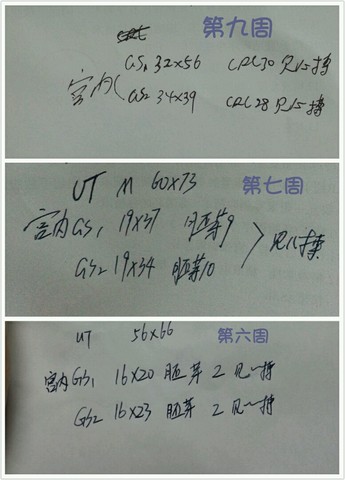 第九周
宫内 GS1 32×56 CRL30 见心搏
GS2 34×39 CRL28 见心搏
第七周
UT M 60×73
宫内GS1 19×37 胚芽9
GS2 19×34 胚芽10
见心搏
第六周
UT 56×66
宫内GS1 16×20 胚芽 2 见心搏
GS2 16×23 胚芽 2 见心搏